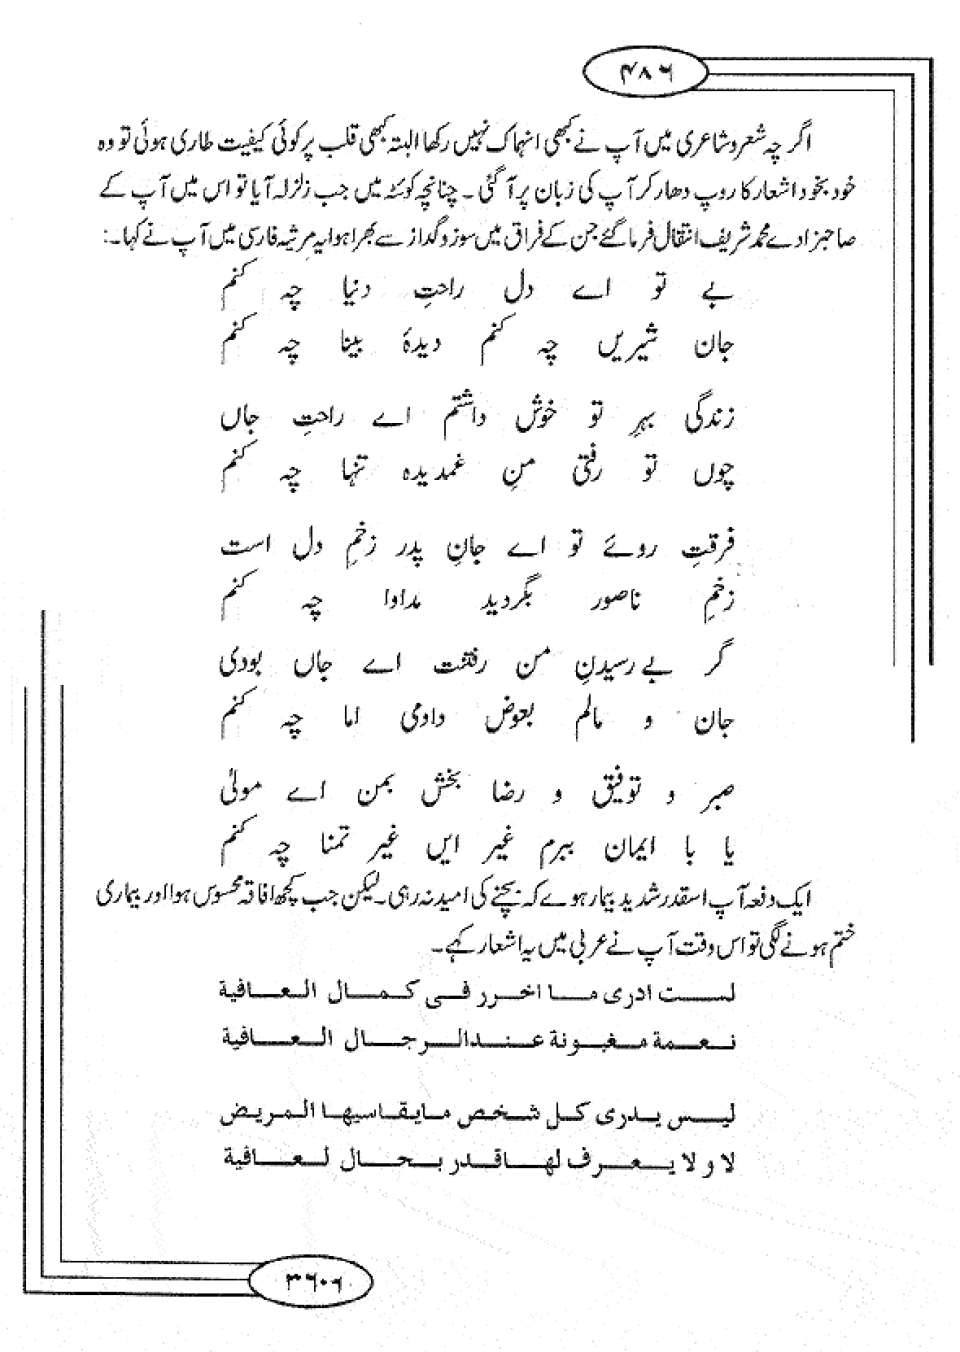 ۴۸۶
اگرچہ شعر و شاعری میں آپ نے کبھی انہماک نہیں رکھا البتہ کبھی قلب پر کوئی کیفیت طاری ہوئی تو وہ
خود بخود اشعار کا روپ دھار کر آپ کی زبان پر آگئی۔ چنانچہ کوئٹہ میں جب زلزلہ آیا تو اس میں آپ کے
صاحبزادے محمد شریف انتقال فرما گئے جن کے فراق میں سوز و گداز سے بھرا ہوا یہ مرثیہ فارسی میں آپ نے کہا۔:
بے تو اے دل راحتِ دنیا چہ کنم
جان شیریں چہ کنم دیدۂ بینا چہ کنم
زندگی بہر تو خوش داشتم اے راحتِ جاں
چوں تو رفتی منِ غمدیدہ تنہا چہ کنم
فرقتِ روئے تو اے جانِ پدر زخمِ دل است
زخمِ ناصور بگردید مداوا چہ کنم
گر بے رسیدنِ من رفتنت اے جاں بودی
جان و مالم بعوض دادمی اما چہ کنم
صبر و توفیق و رضا بخش بمن اے مولیٰ
یا با ایمان ببرم غیر ایں غیر تمنا چہ کنم
ایک دفعہ آپ اسقدر شدید بیمار ہوے کہ بچنے کی امید نہ رہی۔ لیکن جب کچھ افاقہ محسوس ہوا اور بیماری
ختم ہونے لگی تو اس وقت آپ نے عربی میں یہ اشعار کہے۔
لست ادری ما اخرر فی کمال العافیة
نعمة مغبونة عندالرجال العافیة
لیس یدری کل شخص مایقاسیها المریض
لا ولا یعرف لها قدر بحال لعافیة
۳۶۰۶